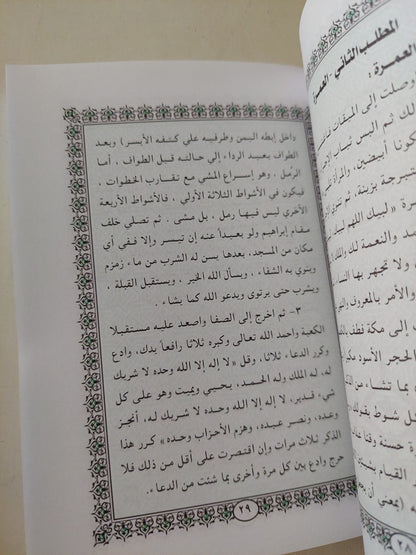 المطلب الثاني - العمرة
العمرة :
وصلت إلى الميقات
ثم البس ثياب
لبيك اللهم لبيك
والنعمة لك والملك
والأمر بالمعروف
إلى مكة فطف
الحجر الأسود
شوط بقولك
حسنة وقنا
٢٨
داخل إبطه اليمن وطرفيه على كتفه الأيسر) وبعد
الطواف يعيد الرداء إلى حالته قبل الطواف ، أما
الرمل ، وهو إسراع المشي مع تقارب الخطوات ،
فيكون في الأشواط الثلاثة الأولى ، فالأشواط الأربعة
الأخرى ليس فيها رمل ، بل مشى . ثم تصلي خلف
مقام إبراهيم ولو بعيداً عنه إن تيسر وإلا ففي أي
مكان من المسجد، بعدها يسن له الشرب من ماء زمزم
وينوي به الشفاء ، ويسأل الله الخير ، ويستقبل القبلة ،
ويشرب حتى يرتوي ويدعو الله كما يشاء .
٣- ثم اخرج إلى الصفا واصعد عليه مستقبلا
الكعبة واحمد الله تعالى وكبره ثلاثا رافعاً يدك، وادع
وكرر الدعاء ثلاثا، وقل «لا إله إلا الله وحده لا شريك
له، له الملك وله الحمد، يحيي ويميت وهو على كل
شيء قدير، لا إله إلا الله وحده لا شريك له، أنجز
وعده، ونصر عبده، وهزم الأحزاب وحده» كرر هذا
الذكر ثلاث مرات وإن اقتصرت على أقل من ذلك فلا
حرج وادع بين كل مرة وأخرى بما شئت من الدعاء .
٢٩